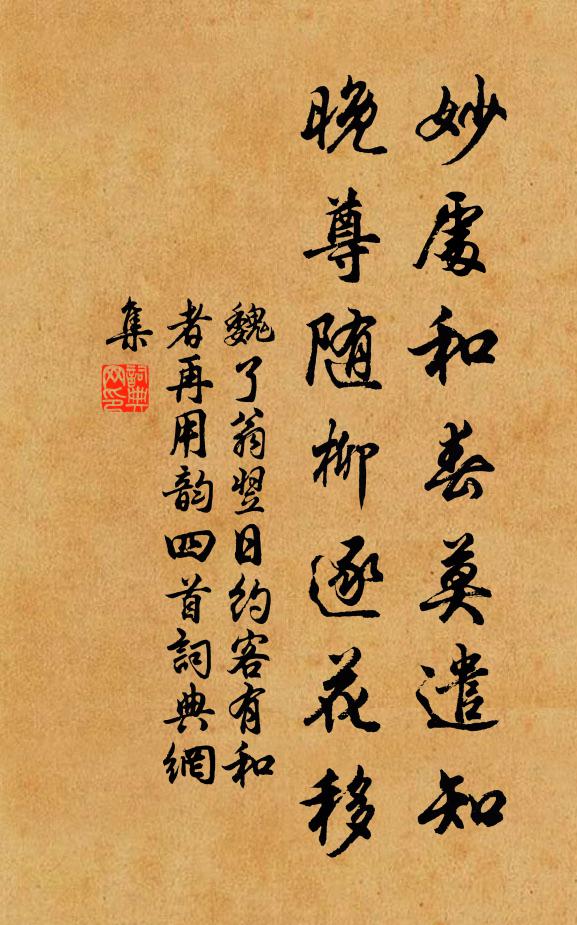 妙處和春莫遣知
晚尊随柳逐花移
魏了翁翌日約客有和
者再用韵四首詞典網
集
詞典網印